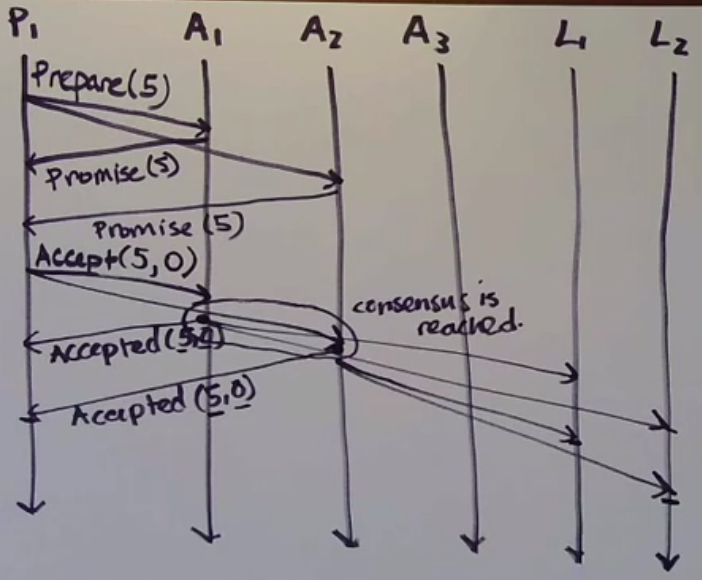 P1 A1 A2 A3 L1 L2
Prepare(5)
Promise(5)
Promise (5)
Accept(5,0)
consensus is
reached.
Accepted (5,0)
Accepted (5,0)